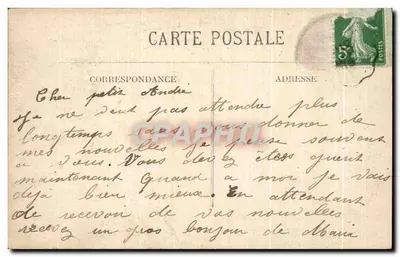 CARTE POSTALE
CORRESPONDANCE
ADRESSE
Cher petit André
Je ne veut pas attendre plus
longtemps sans vous donner de
mes nouvelles je pense souvent
a vous. Vous devez etes guerit
maintenant Quand a moi je vais
deja bien mieux. En attendant
de recevoir de vos nouvelles
recevez un gros bonjour de Maria
5c
CPAPHIL